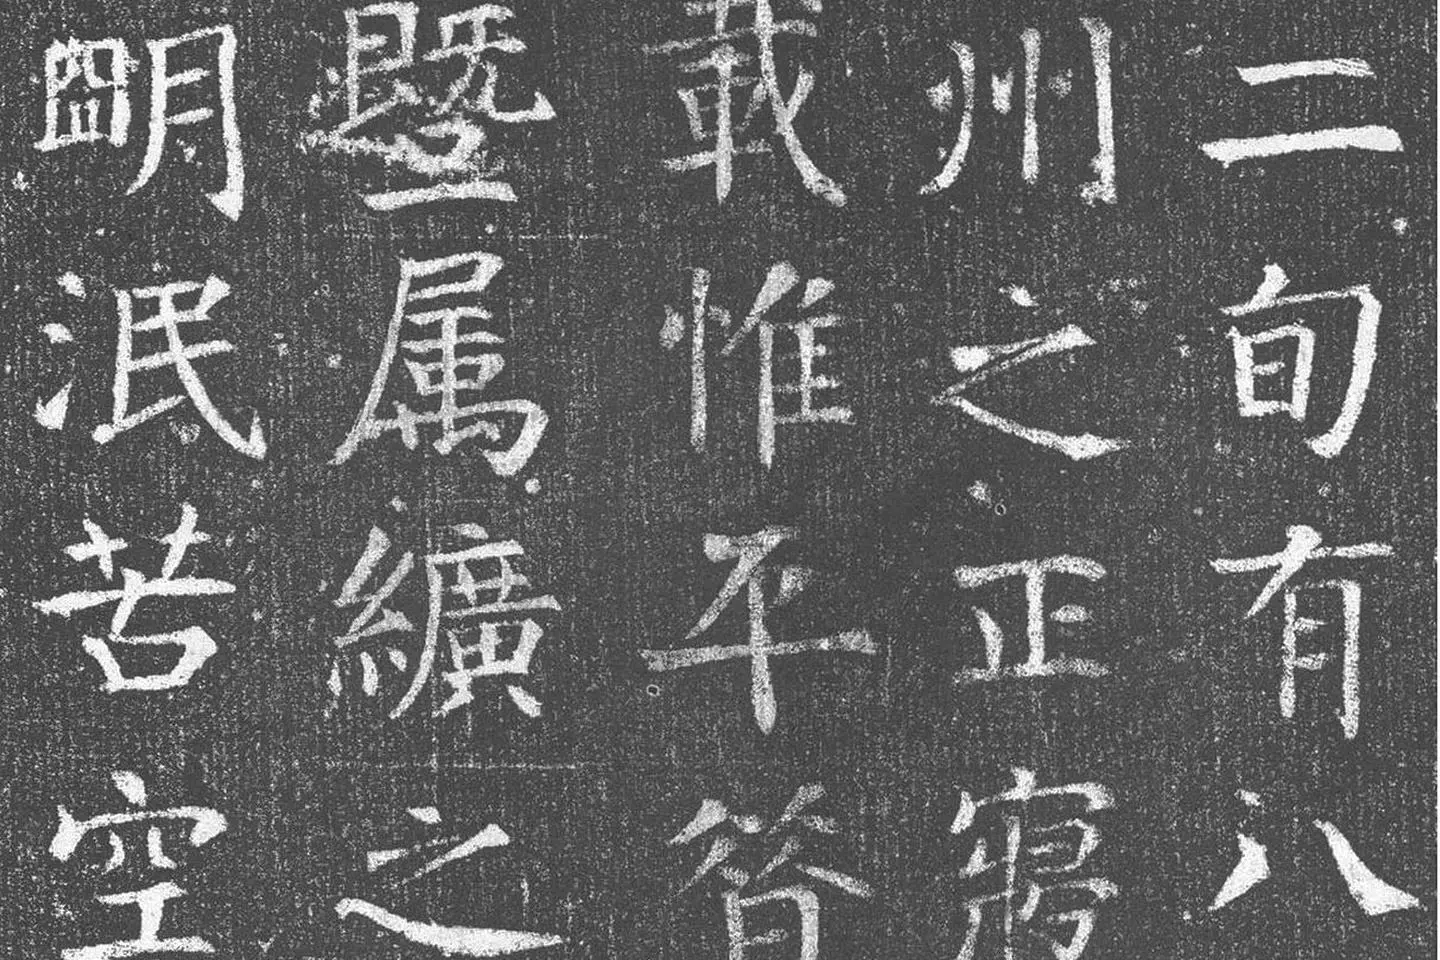 二旬有八
州之正寢
載惟平昔
暨属纊之
朙泯苦空